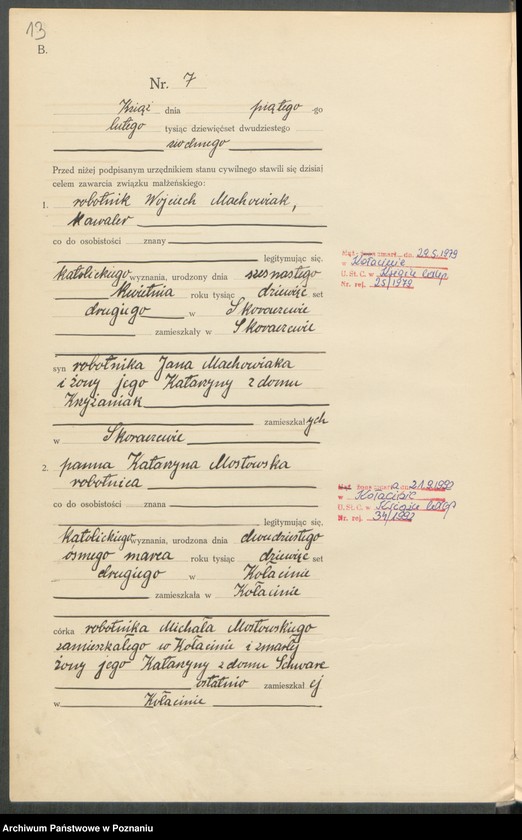 13
B.
Nr. 7
Książ dnia piątego -go
lutego tysiąc dziewięćset dwudziestego
siódmego
Przed niżej podpisanym urzędnikiem stanu cywilnego stawili się dzisiaj
celem zawarcia związku małżeńskiego:
1. robotnik Wojciech Machowiak,
kawaler
co do osobistości znany
legitymując się,
katolickiego wyznania, urodzony dnia szesnastego
kwietnia roku tysiąc dziewięć set
drugiego w Skoraczewie
zamieszkały w Skoraczewie
syn robotnika Jana Machowiaka
i żony jego Katarzyny z domu
Krzyżaniak
zamieszkałych
w Skoraczewie
2. panna Katarzyna Mostowska
robotnica
co do osobistości znana
legitymując się,
katolickiego wyznania, urodzona dnia dwudziestego
ósmego marca roku tysiąc dziewięć set
drugiego w Kołacinie
zamieszkała w Kołacinie
córka robotnika Michała Mostowskiego
zamieszkałego w Kołacinie i zmarłej
żony jego Katarzyny z domu Schwarc
ostatnio zamieszkałej
w Kołacinie
Mąż zmarł dn. 29.5.1979
w Kołacinie
U. St. C. w Książ wlkp
Nr. rej. 25/1979
żona zmarła dn. 21.9.1992
w Kołacinie
U. St. C. w Książ wlkp
Nr. rej. 34/1992
Archiwum Państwowe w Poznaniu